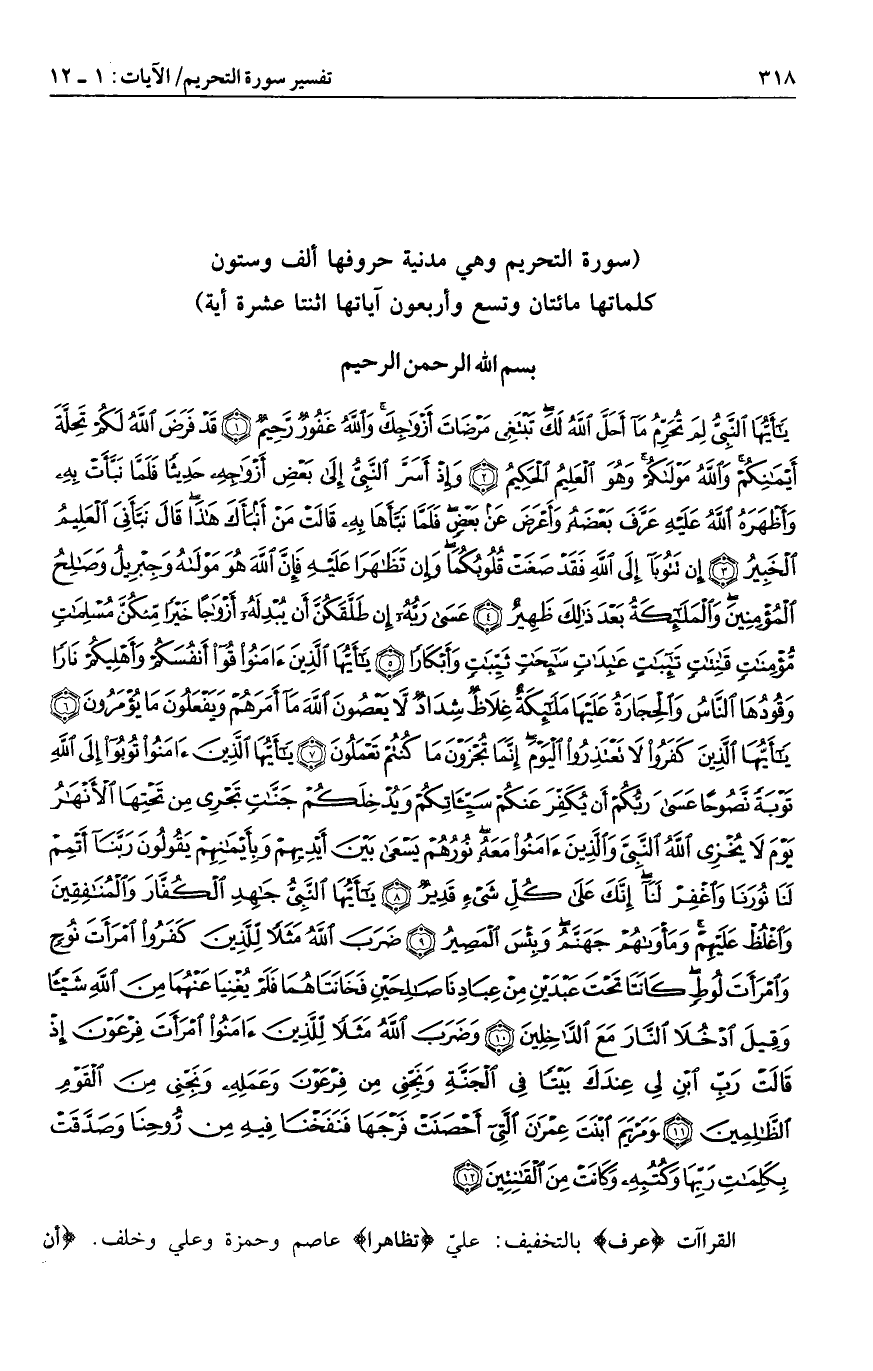 ٣١٨ تفسير سورة التحريم/ الآيات: ١ ـ ١٢
(سورة التحريم وهي مدنية حروفها ألف وستون
كلماتها مائتان وتسع وأربعون آياتها اثنتا عشرة أية)
بسم الله الرحمن الرحيم
يَٰٓأَيُّهَا ٱلنَّبِىُّ لِمَ تُحَرِّمُ مَآ أَحَلَّ ٱللَّهُ لَكَۖ تَبْتَغِى مَرْضَاتَ أَزْوَٰجِكَۚ وَٱللَّهُ غَفُورٌ رَّحِيمٌ ﴿١﴾ قَدْ فَرَضَ ٱللَّهُ لَكُمْ تَحِلَّةَ
أَيْمَٰنِكُمْۚ وَٱللَّهُ مَوْلَىٰكُمْۖ وَهُوَ ٱلْعَلِيمُ ٱلْحَكِيمُ ﴿٢﴾ وَإِذْ أَسَرَّ ٱلنَّبِىُّ إِلَىٰ بَعْضِ أَزْوَٰجِهِۦ حَدِيثًا فَلَمَّا نَبَّأَتْ بِهِۦ
وَأَظْهَرَهُ ٱللَّهُ عَلَيْهِ عَرَّفَ بَعْضَهُۥ وَأَعْرَضَ عَنۢ بَعْضٍۖ فَلَمَّا نَبَّأَهَا بِهِۦ قَالَتْ مَنْ أَنۢبَأَكَ هَٰذَاۖ قَالَ نَبَّأَنِىَ ٱلْعَلِيمُ
ٱلْخَبِيرُ ﴿٣﴾ إِن تَتُوبَآ إِلَى ٱللَّهِ فَقَدْ صَغَتْ قُلُوبُكُمَاۖ وَإِن تَظَٰهَرَا عَلَيْهِ فَإِنَّ ٱللَّهَ هُوَ مَوْلَىٰهُ وَجِبْرِيلُ وَصَٰلِحُ
ٱلْمُؤْمِنِينَۖ وَٱلْمَلَٰٓئِكَةُ بَعْدَ ذَٰلِكَ ظَهِيرٌ ﴿٤﴾ عَسَىٰ رَبُّهُۥٓ إِن طَلَّقَكُنَّ أَن يُبْدِلَهُۥٓ أَزْوَٰجًا خَيْرًا مِّنكُنَّ مُسْلِمَٰتٍ
مُّؤْمِنَٰتٍ قَٰنِتَٰتٍ تَٰٓئِبَٰتٍ عَٰبِدَٰتٍ سَٰٓئِحَٰتٍ ثَيِّبَٰتٍ وَأَبْكَارًا ﴿٥﴾ يَٰٓأَيُّهَا ٱلَّذِينَ ءَامَنُوا۟ قُوٓا۟ أَنفُسَكُمْ وَأَهْلِيكُمْ نَارًا
وَقُودُهَا ٱلنَّاسُ وَٱلْحِجَارَةُ عَلَيْهَا مَلَٰٓئِكَةٌ غِلَاظٌ شِدَادٌ لَّا يَعْصُونَ ٱللَّهَ مَآ أَمَرَهُمْ وَيَفْعَلُونَ مَا يُؤْمَرُونَ ﴿٦﴾
يَٰٓأَيُّهَا ٱلَّذِينَ كَفَرُوا۟ لَا تَعْتَذِرُوا۟ ٱلْيَوْمَۖ إِنَّمَا تُجْزَوْنَ مَا كُنتُمْ تَعْمَلُونَ ﴿٧﴾ يَٰٓأَيُّهَا ٱلَّذِينَ ءَامَنُوا۟ تُوبُوٓا۟ إِلَى ٱللَّهِ
تَوْبَةً نَّصُوحًا عَسَىٰ رَبُّكُمْ أَن يُكَفِّرَ عَنكُمْ سَيِّـَٔاتِكُمْ وَيُدْخِلَكُمْ جَنَّٰتٍ تَجْرِى مِن تَحْتِهَا ٱلْأَنْهَٰرُ
يَوْمَ لَا يُخْزِى ٱللَّهُ ٱلنَّبِىَّ وَٱلَّذِينَ ءَامَنُوا۟ مَعَهُۥۖ نُورُهُمْ يَسْعَىٰ بَيْنَ أَيْدِيهِمْ وَبِأَيْمَٰنِهِمْ يَقُولُونَ رَبَّنَآ أَتْمِمْ
لَنَا نُورَنَا وَٱغْفِرْ لَنَآۖ إِنَّكَ عَلَىٰ كُلِّ شَىْءٍ قَدِيرٌ ﴿٨﴾ يَٰٓأَيُّهَا ٱلنَّبِىُّ جَٰهِدِ ٱلْكُفَّارَ وَٱلْمُنَٰفِقِينَ
وَٱغْلُظْ عَلَيْهِمْۚ وَمَأْوَىٰهُمْ جَهَنَّمُۖ وَبِئْسَ ٱلْمَصِيرُ ﴿٩﴾ ضَرَبَ ٱللَّهُ مَثَلًا لِّلَّذِينَ كَفَرُوا۟ ٱمْرَأَتَ نُوحٍ
وَٱمْرَأَتَ لُوطٍۖ كَانَتَا تَحْتَ عَبْدَيْنِ مِنْ عِبَادِنَا صَٰلِحَيْنِ فَخَانَتَاهُمَا فَلَمْ يُغْنِيَا عَنْهُمَا مِنَ ٱللَّهِ شَيْـًٔا
وَقِيلَ ٱدْخُلَا ٱلنَّارَ مَعَ ٱلدَّٰخِلِينَ ﴿١٠﴾ وَضَرَبَ ٱللَّهُ مَثَلًا لِّلَّذِينَ ءَامَنُوا۟ ٱمْرَأَتَ فِرْعَوْنَ إِذْ
قَالَتْ رَبِّ ٱبْنِ لِى عِندَكَ بَيْتًا فِى ٱلْجَنَّةِ وَنَجِّنِى مِن فِرْعَوْنَ وَعَمَلِهِۦ وَنَجِّنِى مِنَ ٱلْقَوْمِ
ٱلظَّٰلِمِينَ ﴿١١﴾ وَمَرْيَمَ ٱبْنَتَ عِمْرَٰنَ ٱلَّتِىٓ أَحْصَنَتْ فَرْجَهَا فَنَفَخْنَا فِيهِ مِن رُّوحِنَا وَصَدَّقَتْ
بِكَلِمَٰتِ رَبِّهَا وَكُتُبِهِۦ وَكَانَتْ مِنَ ٱلْقَٰنِتِينَ ﴿١٢﴾
القراآت ﴿عرف﴾ بالتخفيف: عليّ ﴿تظاهرا﴾ عاصم وحمزة وعلي وخلف. ﴿أن